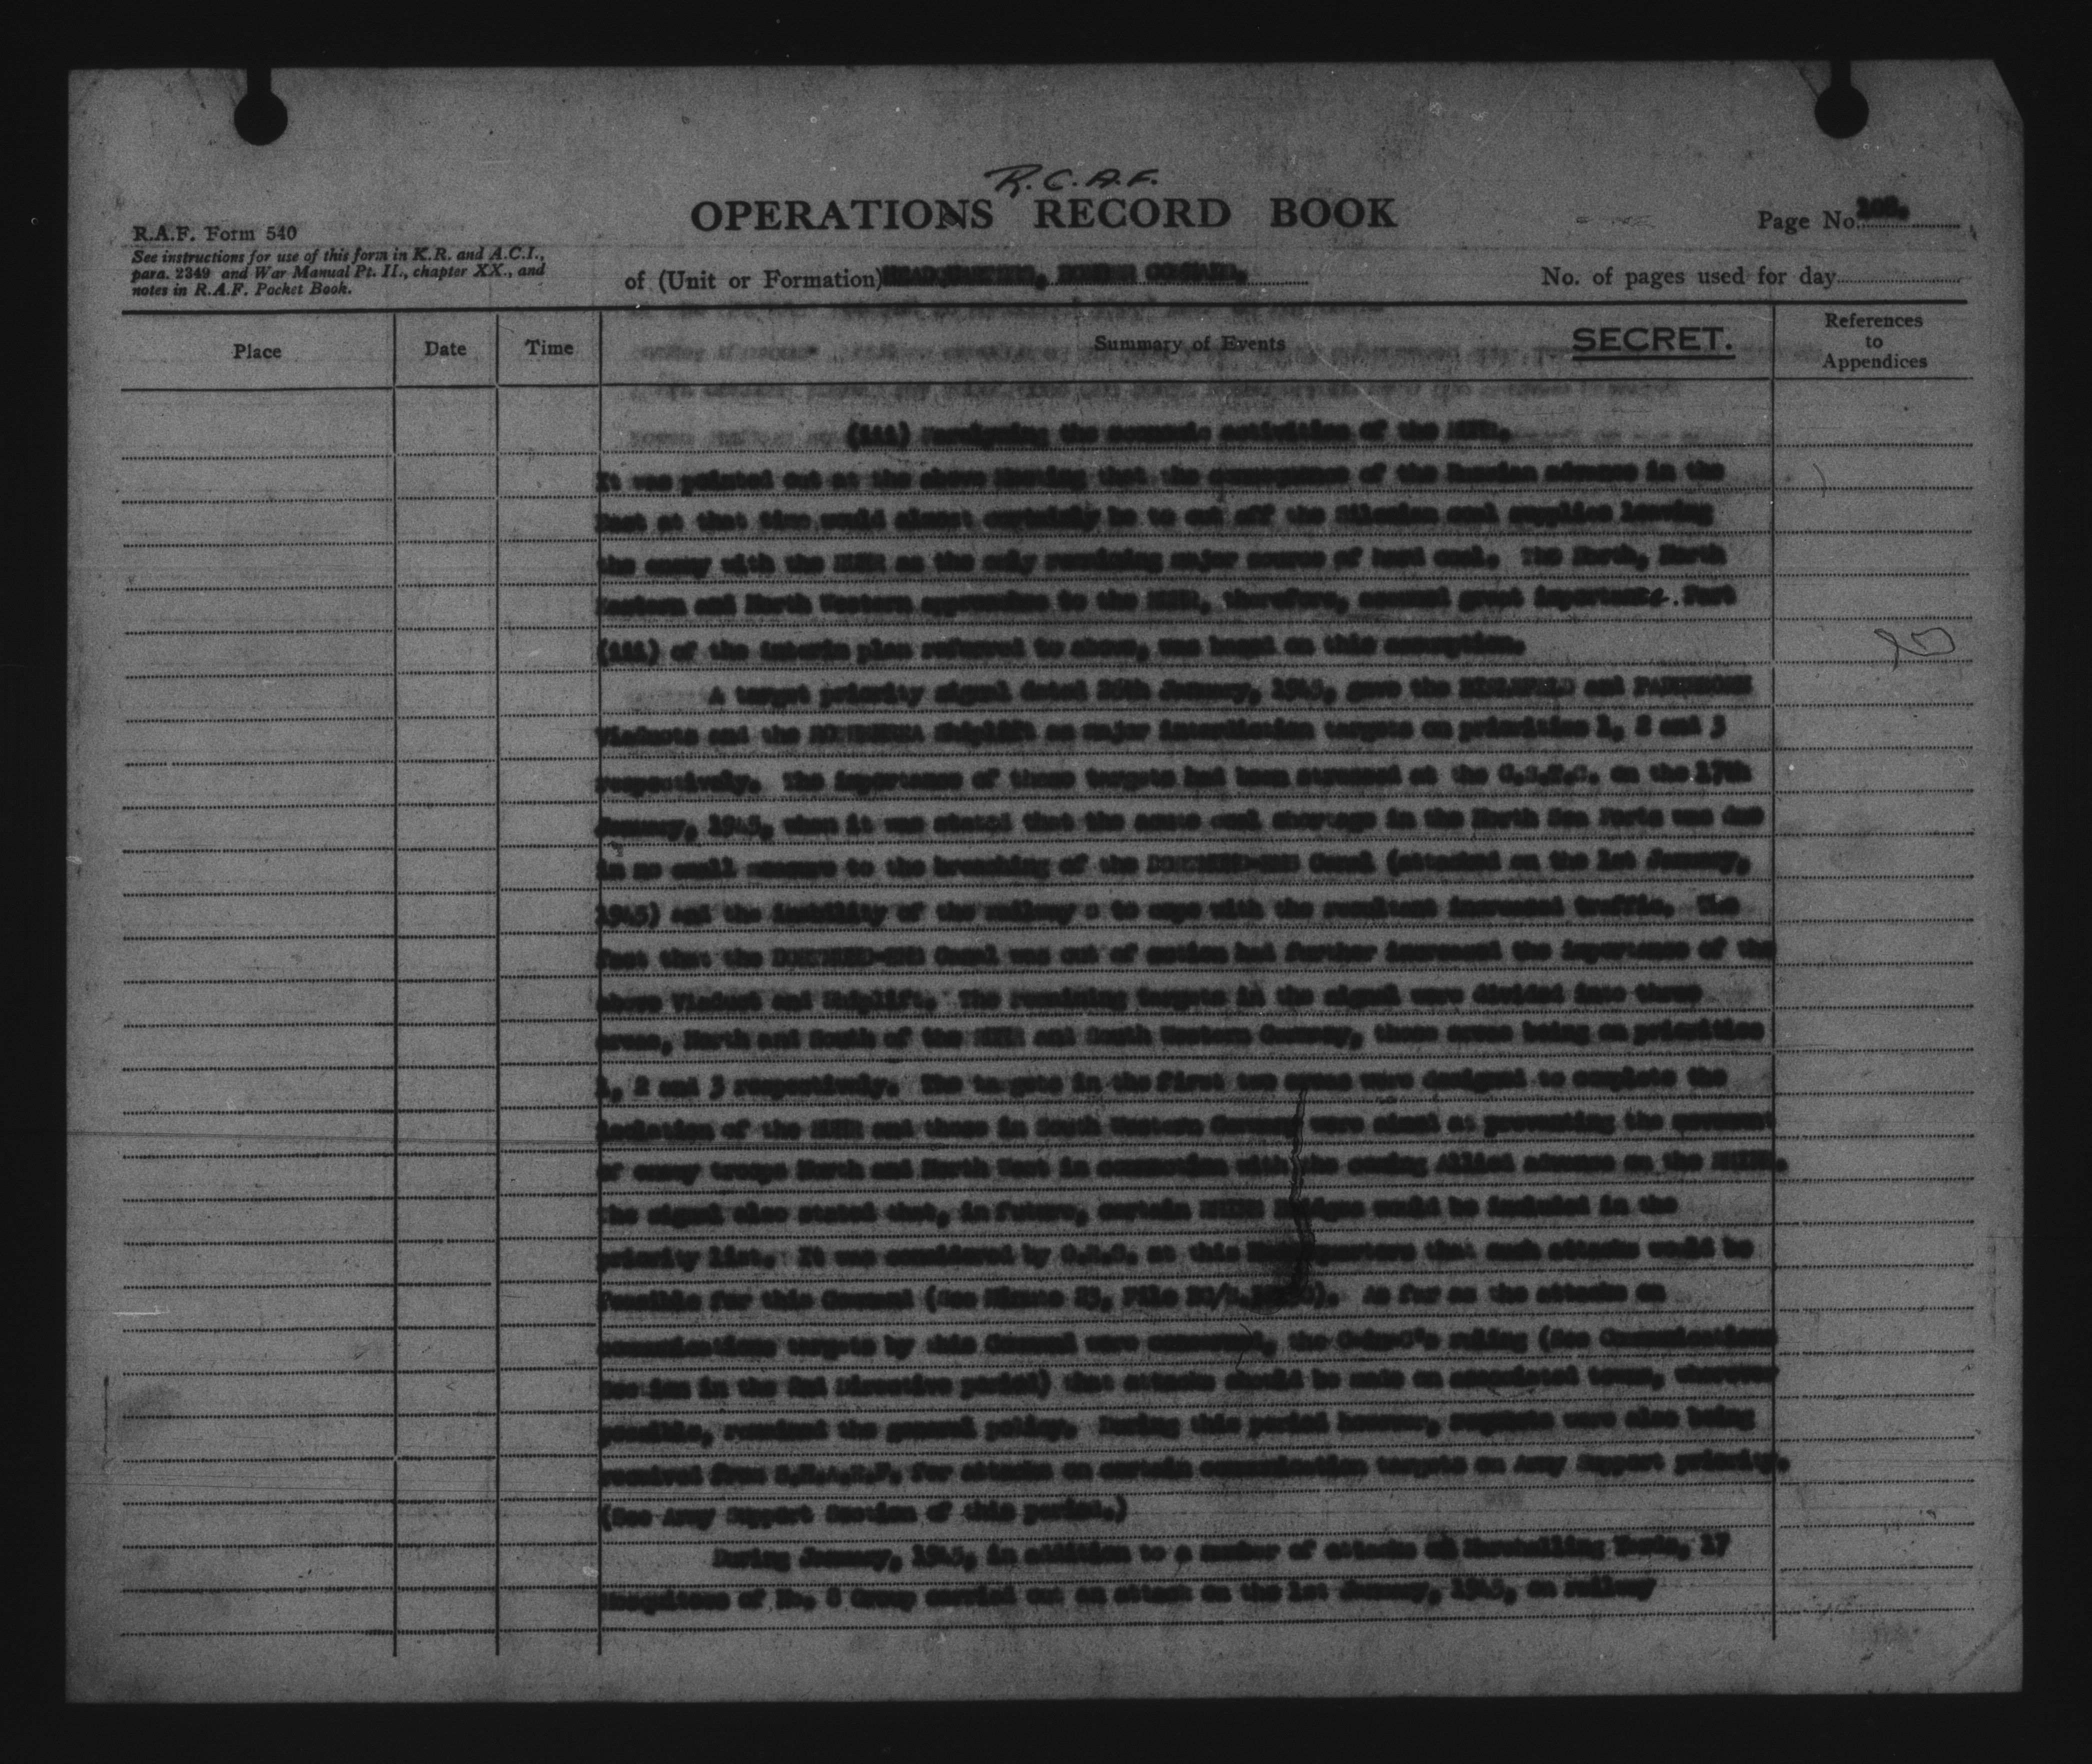 R.C.A.F.
OPERATIONS RECORD BOOK
Page No.
R.A.F. Form 540
See instructions for use of this form in K.R. and A.C.I.,
para. 2349 and War Manual Pt. II., chapter XX., and
notes in R.A.F. Pocket Book.
of (Unit or Formation) HEADQUARTERS, BOMBER COMMAND.
No. of pages used for day
Place Date Time Summary of Events SECRET. References to Appendices
(iii) the economic activities of the RUHR.
It was pointed out at the above Meeting that the consequence of the Russian advance in the
East at that time would almost certainly be to cut off the Silesian coal supplies leaving
the enemy with the RUHR as the only remaining major source of hard coal. The North, North
Eastern and North Western approaches to the RUHR, therefore, assumed great importance. Part
(iii) of the interim plan referred to above, was based on this assumption.
A target priority signal dated 28th January, 1945, gave the BIELEFELD and PADERBORN
Viaducts and the ROTHENSEE Shiplift as major interdiction targets on priorities 1, 2 and 3
respectively. The importance of these targets had been stressed at the C.S.T.C. on the 17th
January, 1945, when it was stated that the acute coal shortage in the North Sea Ports was due
in no small measure to the breaching of the DORTMUND-EMS Canal (attacked on the 1st January,
1945) and the inability of the railway s to cope with the resultant increased traffic. The
fact that the DORTMUND-EMS Canal was out of action had further increased the importance of the
above Viaduct and Shiplift. The remaining targets in the signal were divided into three
areas, North and South of the RUHR and South Western Germany, these areas being on priorities
1, 2 and 3 respectively. The targets in the first two areas were designed to complete the
isolation of the RUHR and those in South Western Germany were aimed at preventing the movement
of enemy troops North and North West in connection with the coming Allied advance on the RHINE.
The signal also stated that, in future, certain RHINE Bridges would be included in the
priority list. It was considered by O.R.S. at this Headquarters that such attacks would be
feasible for this Command (See Minute 23, File BC/S.). As far as the attacks on
communications targets by this Command were concerned, the C-in-C's ruling (See Communications
Section in the 2nd Directive period) that attacks should be made on associated towns, wherever
possible, remained the general policy. During this period however, requests were also being
received from S.H.A.E.F. for attacks on certain communication targets on Army Support priority.
(See Army Support Section of this period.)
During January, 1945, in addition to a number of attacks on Marshalling Yards, 17
Mosquitoes of No. 8 Group carried out an attack on the 1st January, 1945, on railway